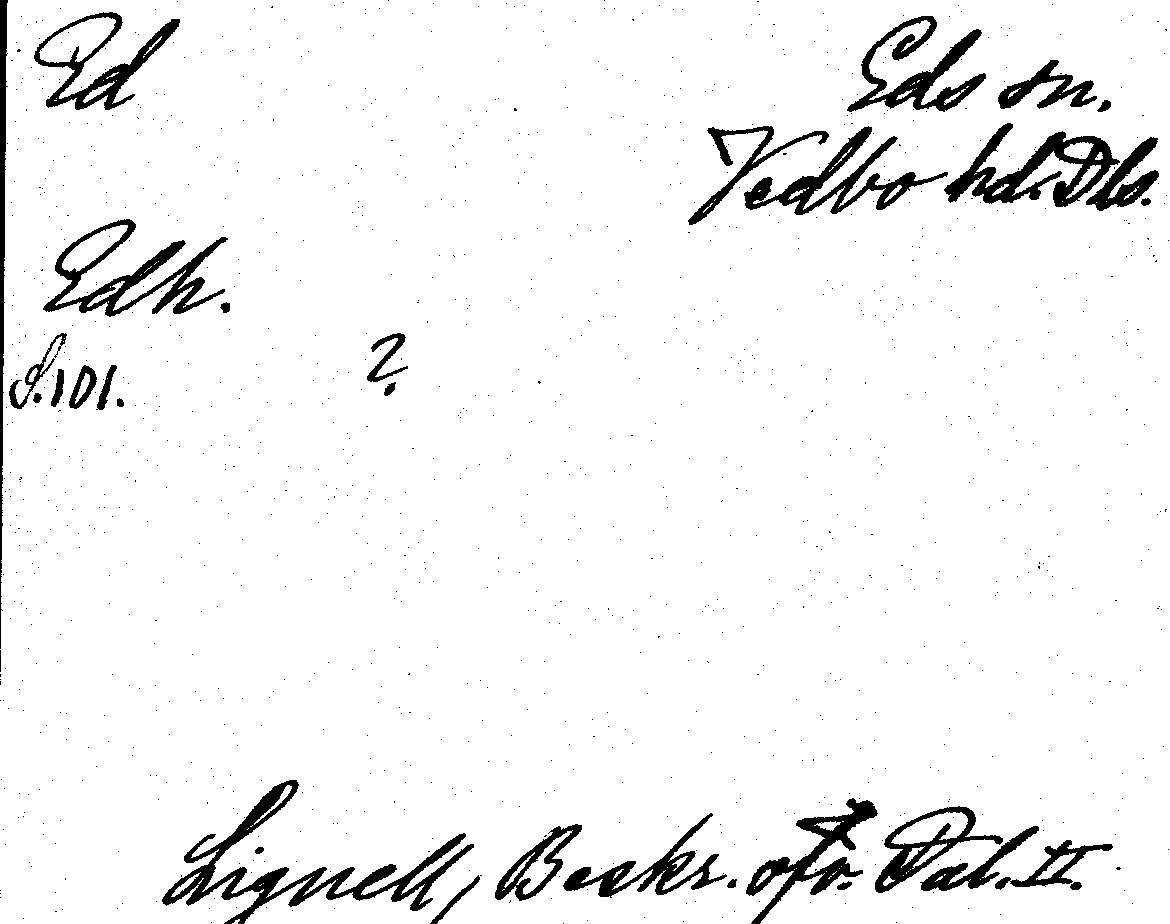 Ed
Eds sn.
Vedbo hd. Dls.
Edh.
S. 101. ?
Lignell, Beskr. öfv. Dal. II.